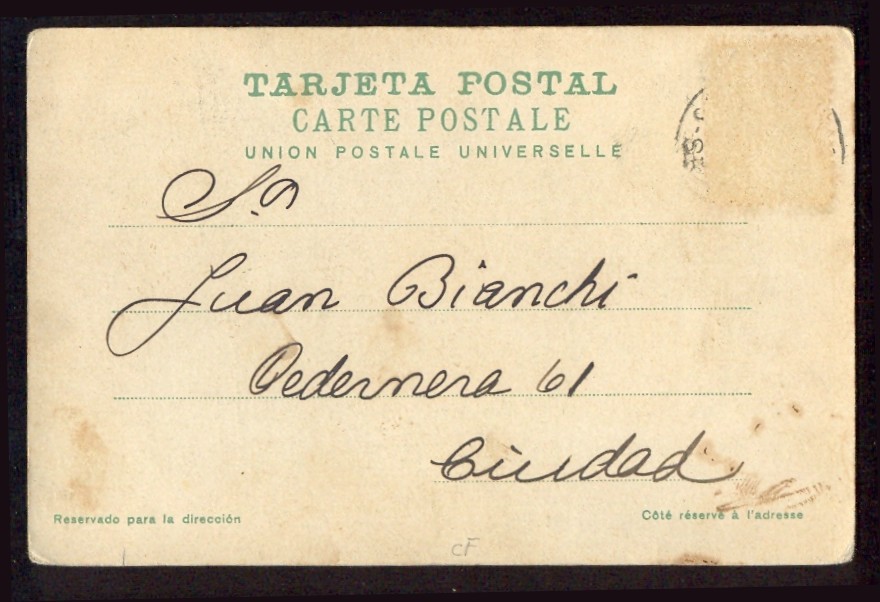 TARJETA POSTAL
CARTE POSTALE
UNION POSTALE UNIVERSELLE
S.r
Juan Bianchi
Pedernera 61
Ciudad
Reservado para la dirección
Côté réservé à l'adresse
CF